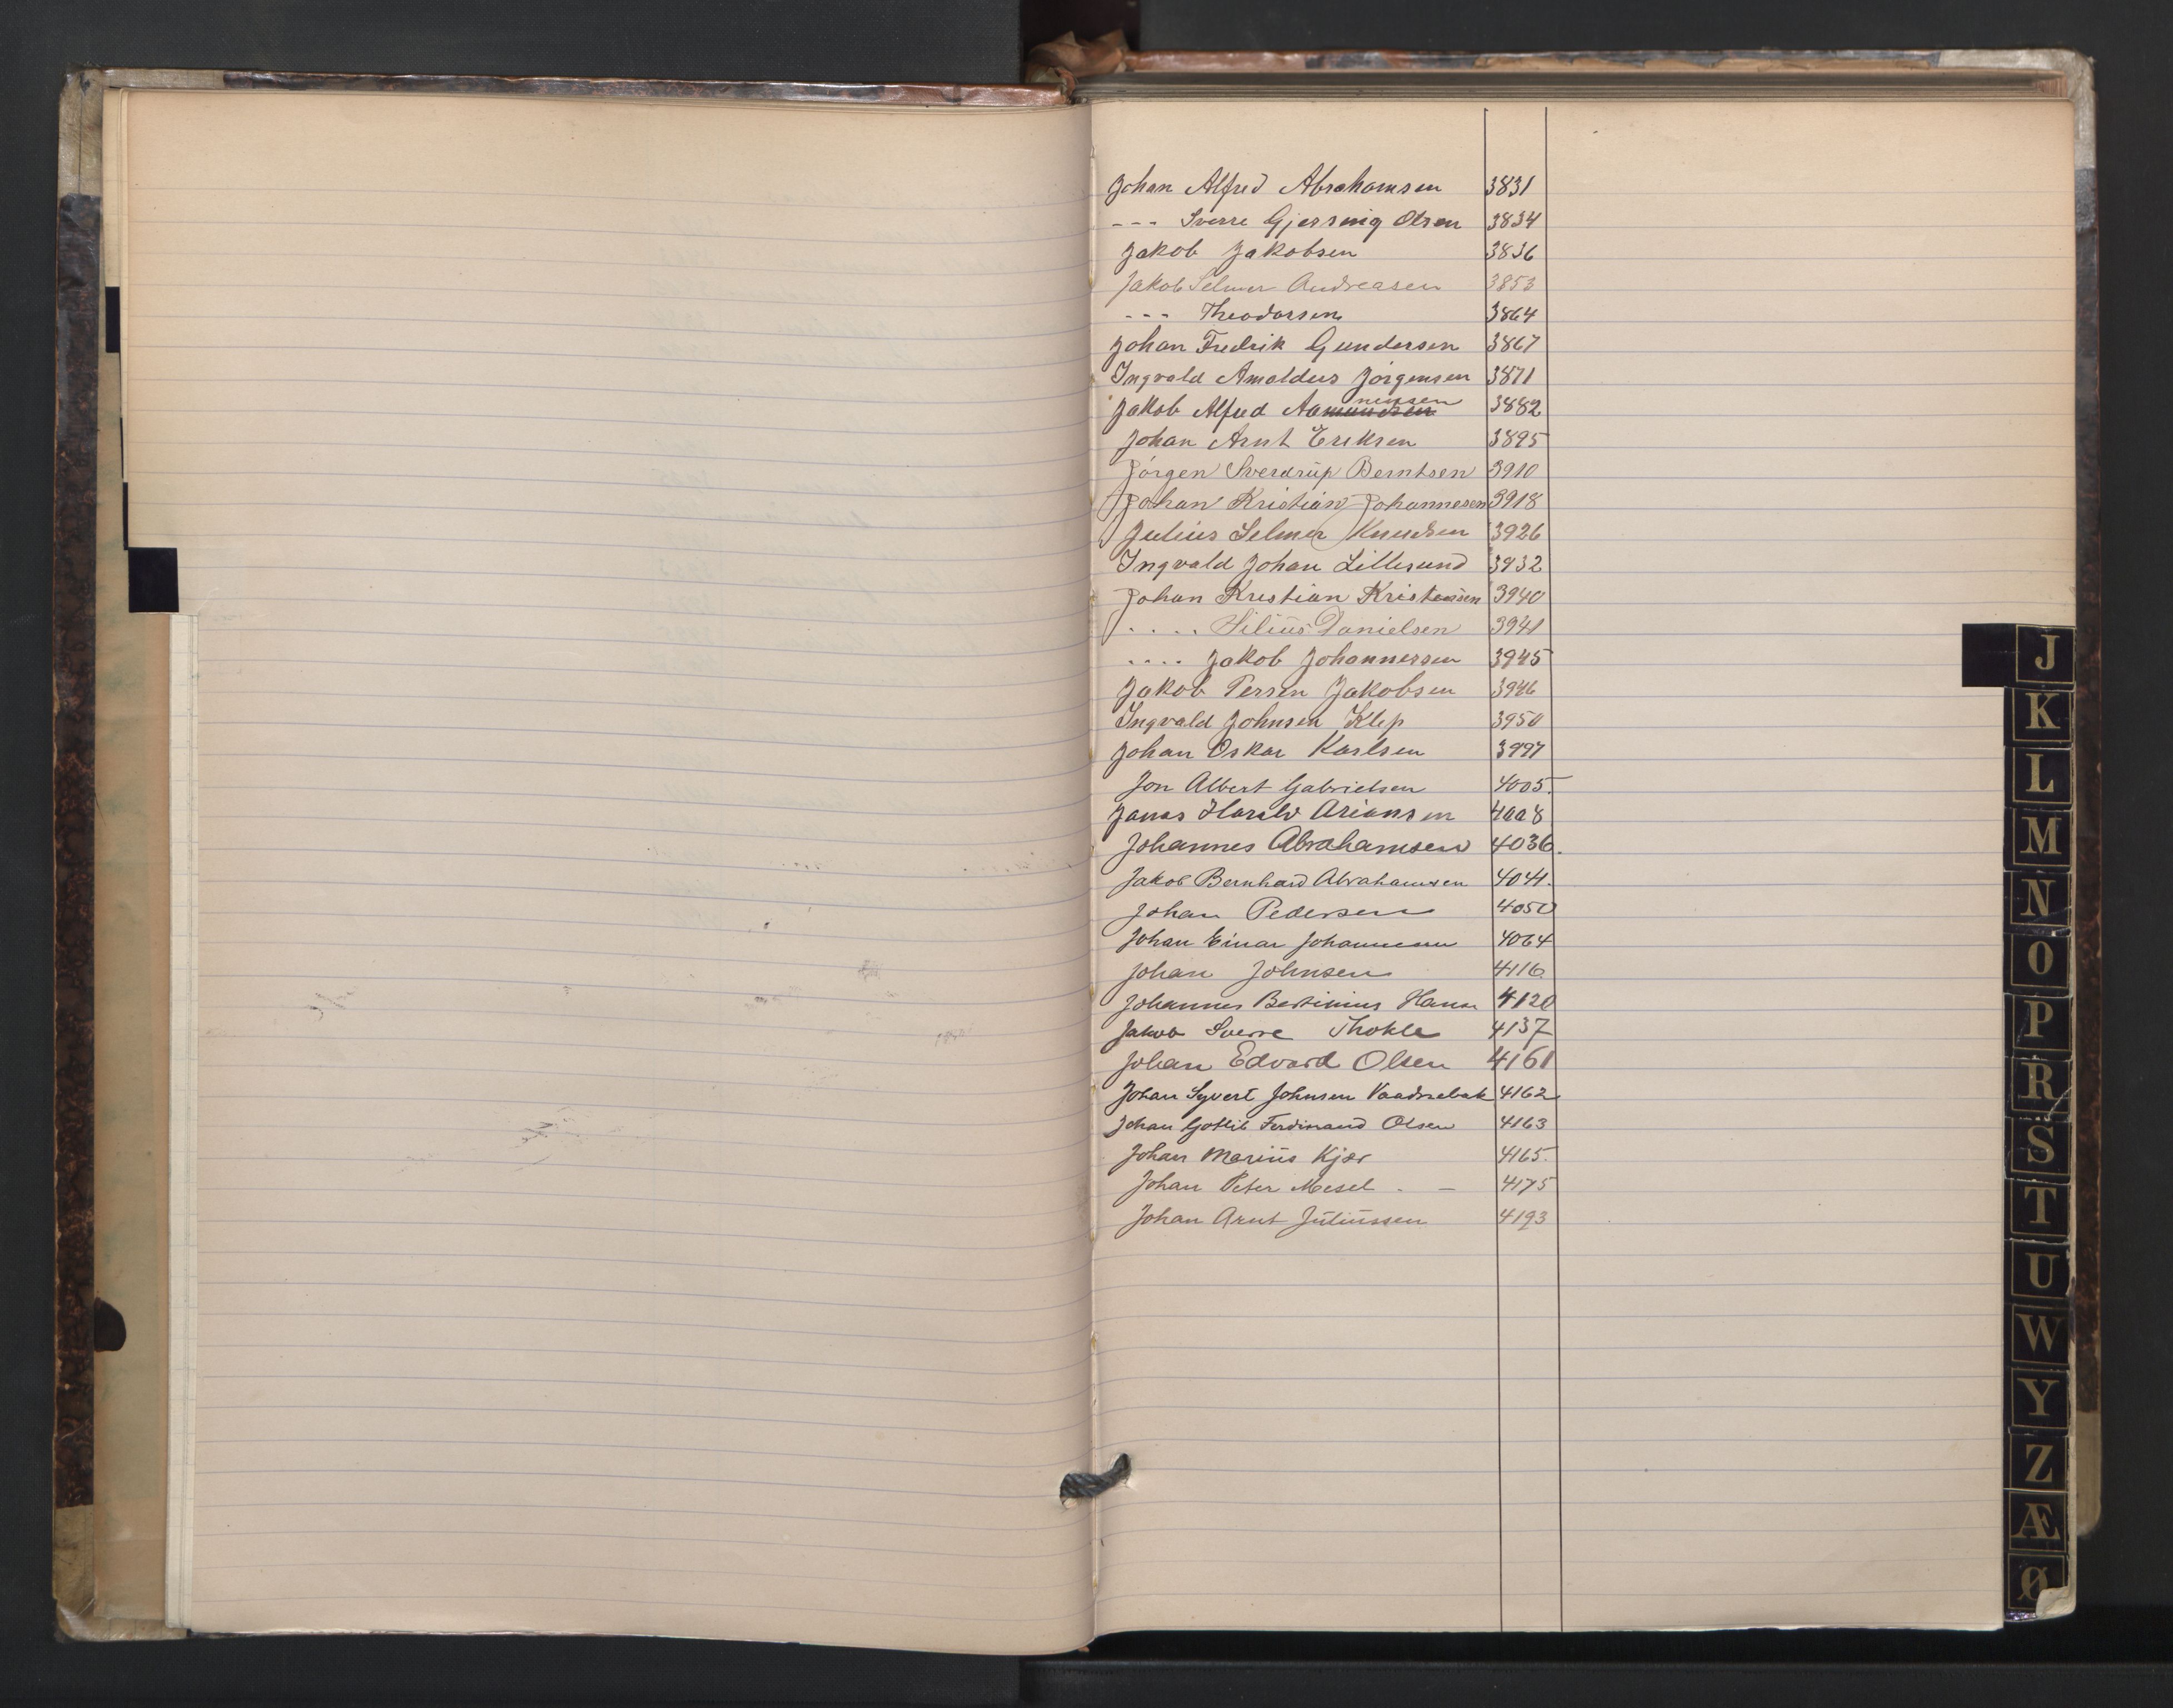 Johan Alfred Abrahamsen 3831
--- Sverre Gjersing Olsen 3834
Jakob Jakobsen 3836
Jakob Selmer Andreasen 3853
--- Theodorsen 3864
Johan Fredrik Gundersen 3867
Ingvald Amaldus Jörgensen 3871
Jakob Alfred 3882
Johan Arnt Eriksen 3895
Jörgen Sverdrup Berntsen 3910
Johan Kristian Johannesen 3918
Julius Selmer Knudsen 3926
Ingvald Johan Lillesund 3932
Johan Kristian Kristensen 3940
..... Silius Danielsen 3941
.... Jakob Johannessen 3945
Jakob Persen Jakobsen 3946
Ingvald Johnsen Klep 3950
Johan Oskar Karlsen 3997
Jon Albert Gabrielsen 4005.
Jonas Harald Ariansen 4008
Johannes Abrahamsen 4036.
Jakob Bernhard Abrahamsen 4041.
Johan Pedersen 4050
Johan Einar Johannesen 4064
Johan Johnsen 4116
Johannes Bertinius Hansen 4120
Jakob Sverre Thokle 4137
Johan Edvard Olsen 4161
Johan Syvert Johnsen Vaadnebak 4162
Johan Gotlib Ferdinand Olsen 4163
Johan Marius Kjær 4165.
Johan Peter Mesel . - 4175
Johan Arnt Juliussen 4193
J
K
L
M
N
O
P
R
S
T
U
W
Y
Z
Æ
Ø